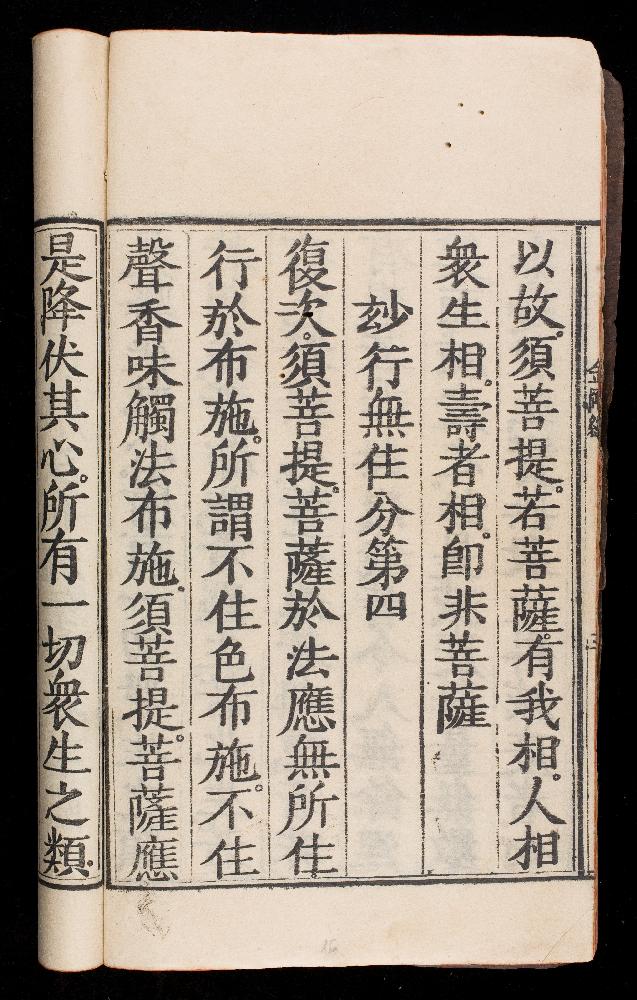 以故。須菩提。若菩薩。有我相。人相
衆生相。壽者相。卽非菩薩
玅行無住分第四
復次。須菩提。菩薩於法應無所住
行於布施。所謂不住色布施。不住
聲香味觸法布施。須菩提。菩薩應
是降伏其心。所有一切衆生之類。